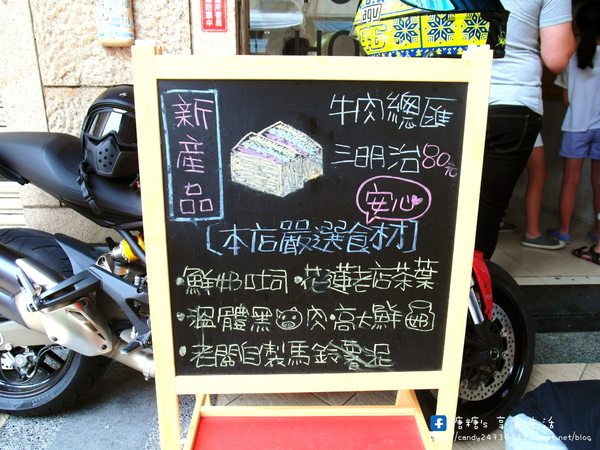 新產品
牛肉總匯
三明治80元
安心
[本店嚴選食材]
•鮮奶吐司•花蓮老店茶葉
•溫體黑肉•高大鮮奶
•老闆自製馬鈴薯泥
糖糖's 享食生活